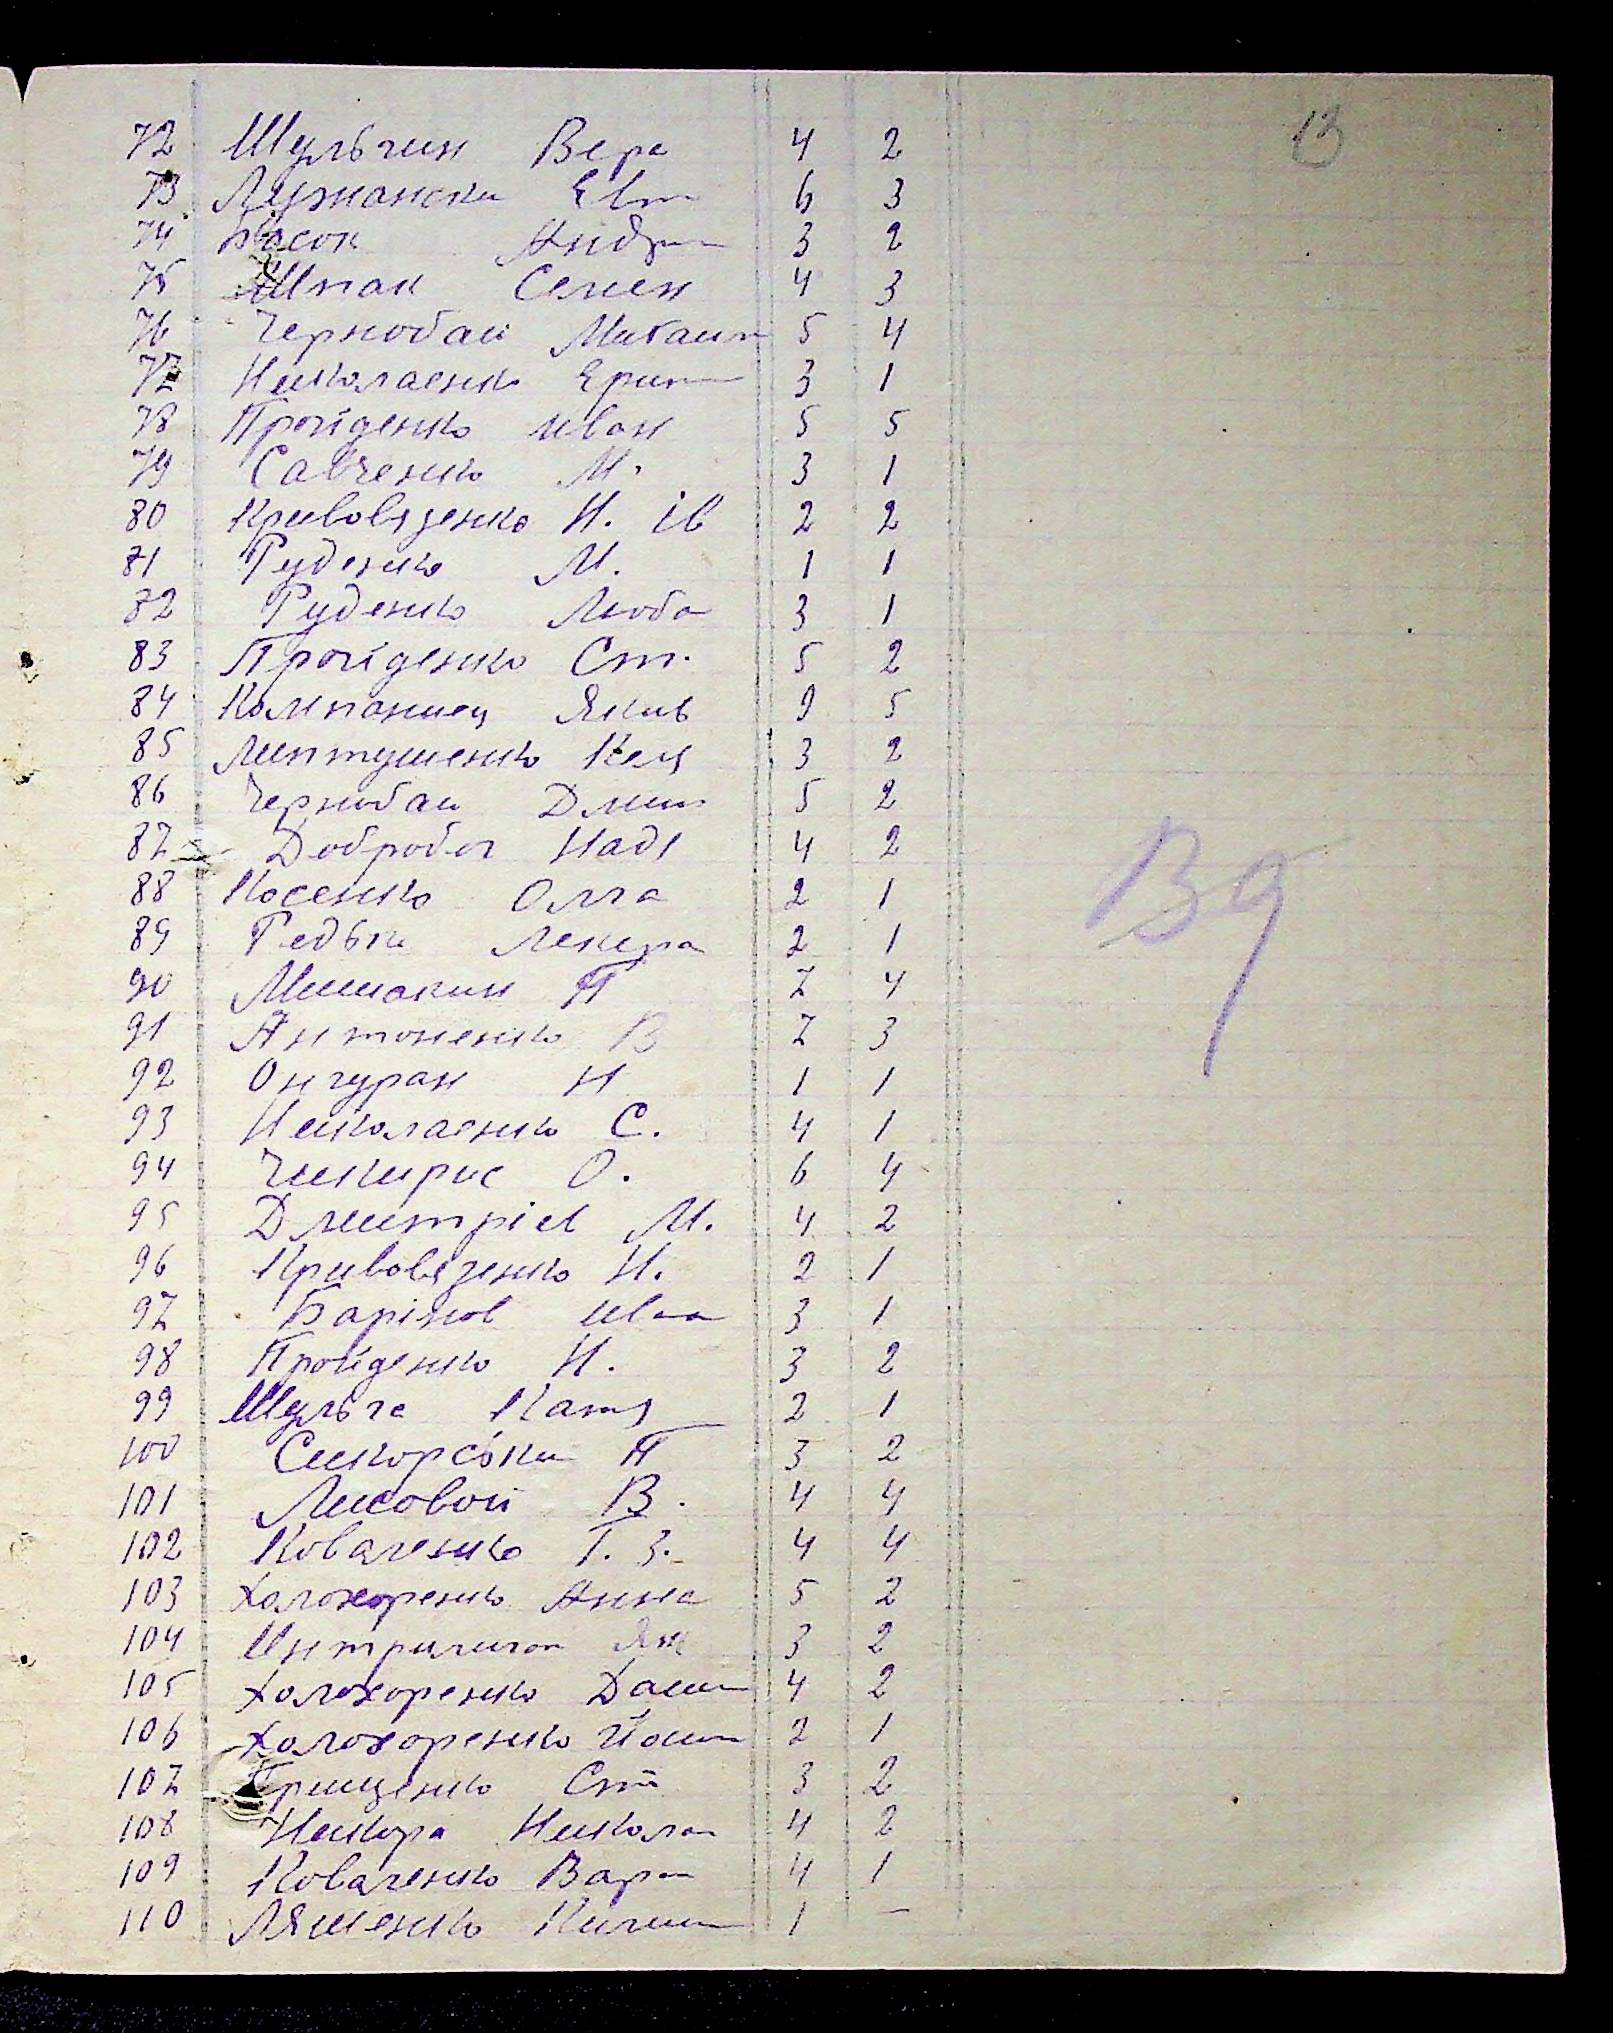 13
72 Шульгин Вера 4 2
73 Лужански Евт 6 3
74 Носок Андр 3 2
75 Шпак Семен 4 3
76 Чернобай Михаил 5 4
77 Николаенко 3 1
78 Пройденко Иван 5 5
79 Савченко М. 3 1
80 Кривовязенко Н. Ів 2 2
81 Руденко М. 1 1
82 Руденко Люба 3 1
83 Пройденко Ст. 5 2
84 Компаниец Якив 9 5
85 3 2
86 Чернобаи Дмит 5 2
87 Добробог Надя 4 2
88 Косенко Олга 2 1
89 Редька 2 1
90 Мишакин П 7 4
91 Антоненко В 7 3
92 Онгуран Н 1 1
93 Николаенко С. 4 1
94 Чикирис О. 6 4
95 Дмитріев М. 4 2
96 Кривовязенко Н. 2 1
97 Барінов Иван 3 1
98 Пройденко Н. 3 2
99 Шульга Катя 2 1
100 Сикорськи П 3 2
101 Лисовой В. 4 4
102 Коваленко Г. З. 4 4
103 Холохоренко Анна 5 2
104 3 2
105 Холохоренко Дани 4 2
106 Холохоренко Йоси 2 1
107 Грищенко Ст 3 2
108 Никора Никола 4 2
109 Коваленко Вар 4 1
110 Ляшенко 1 –